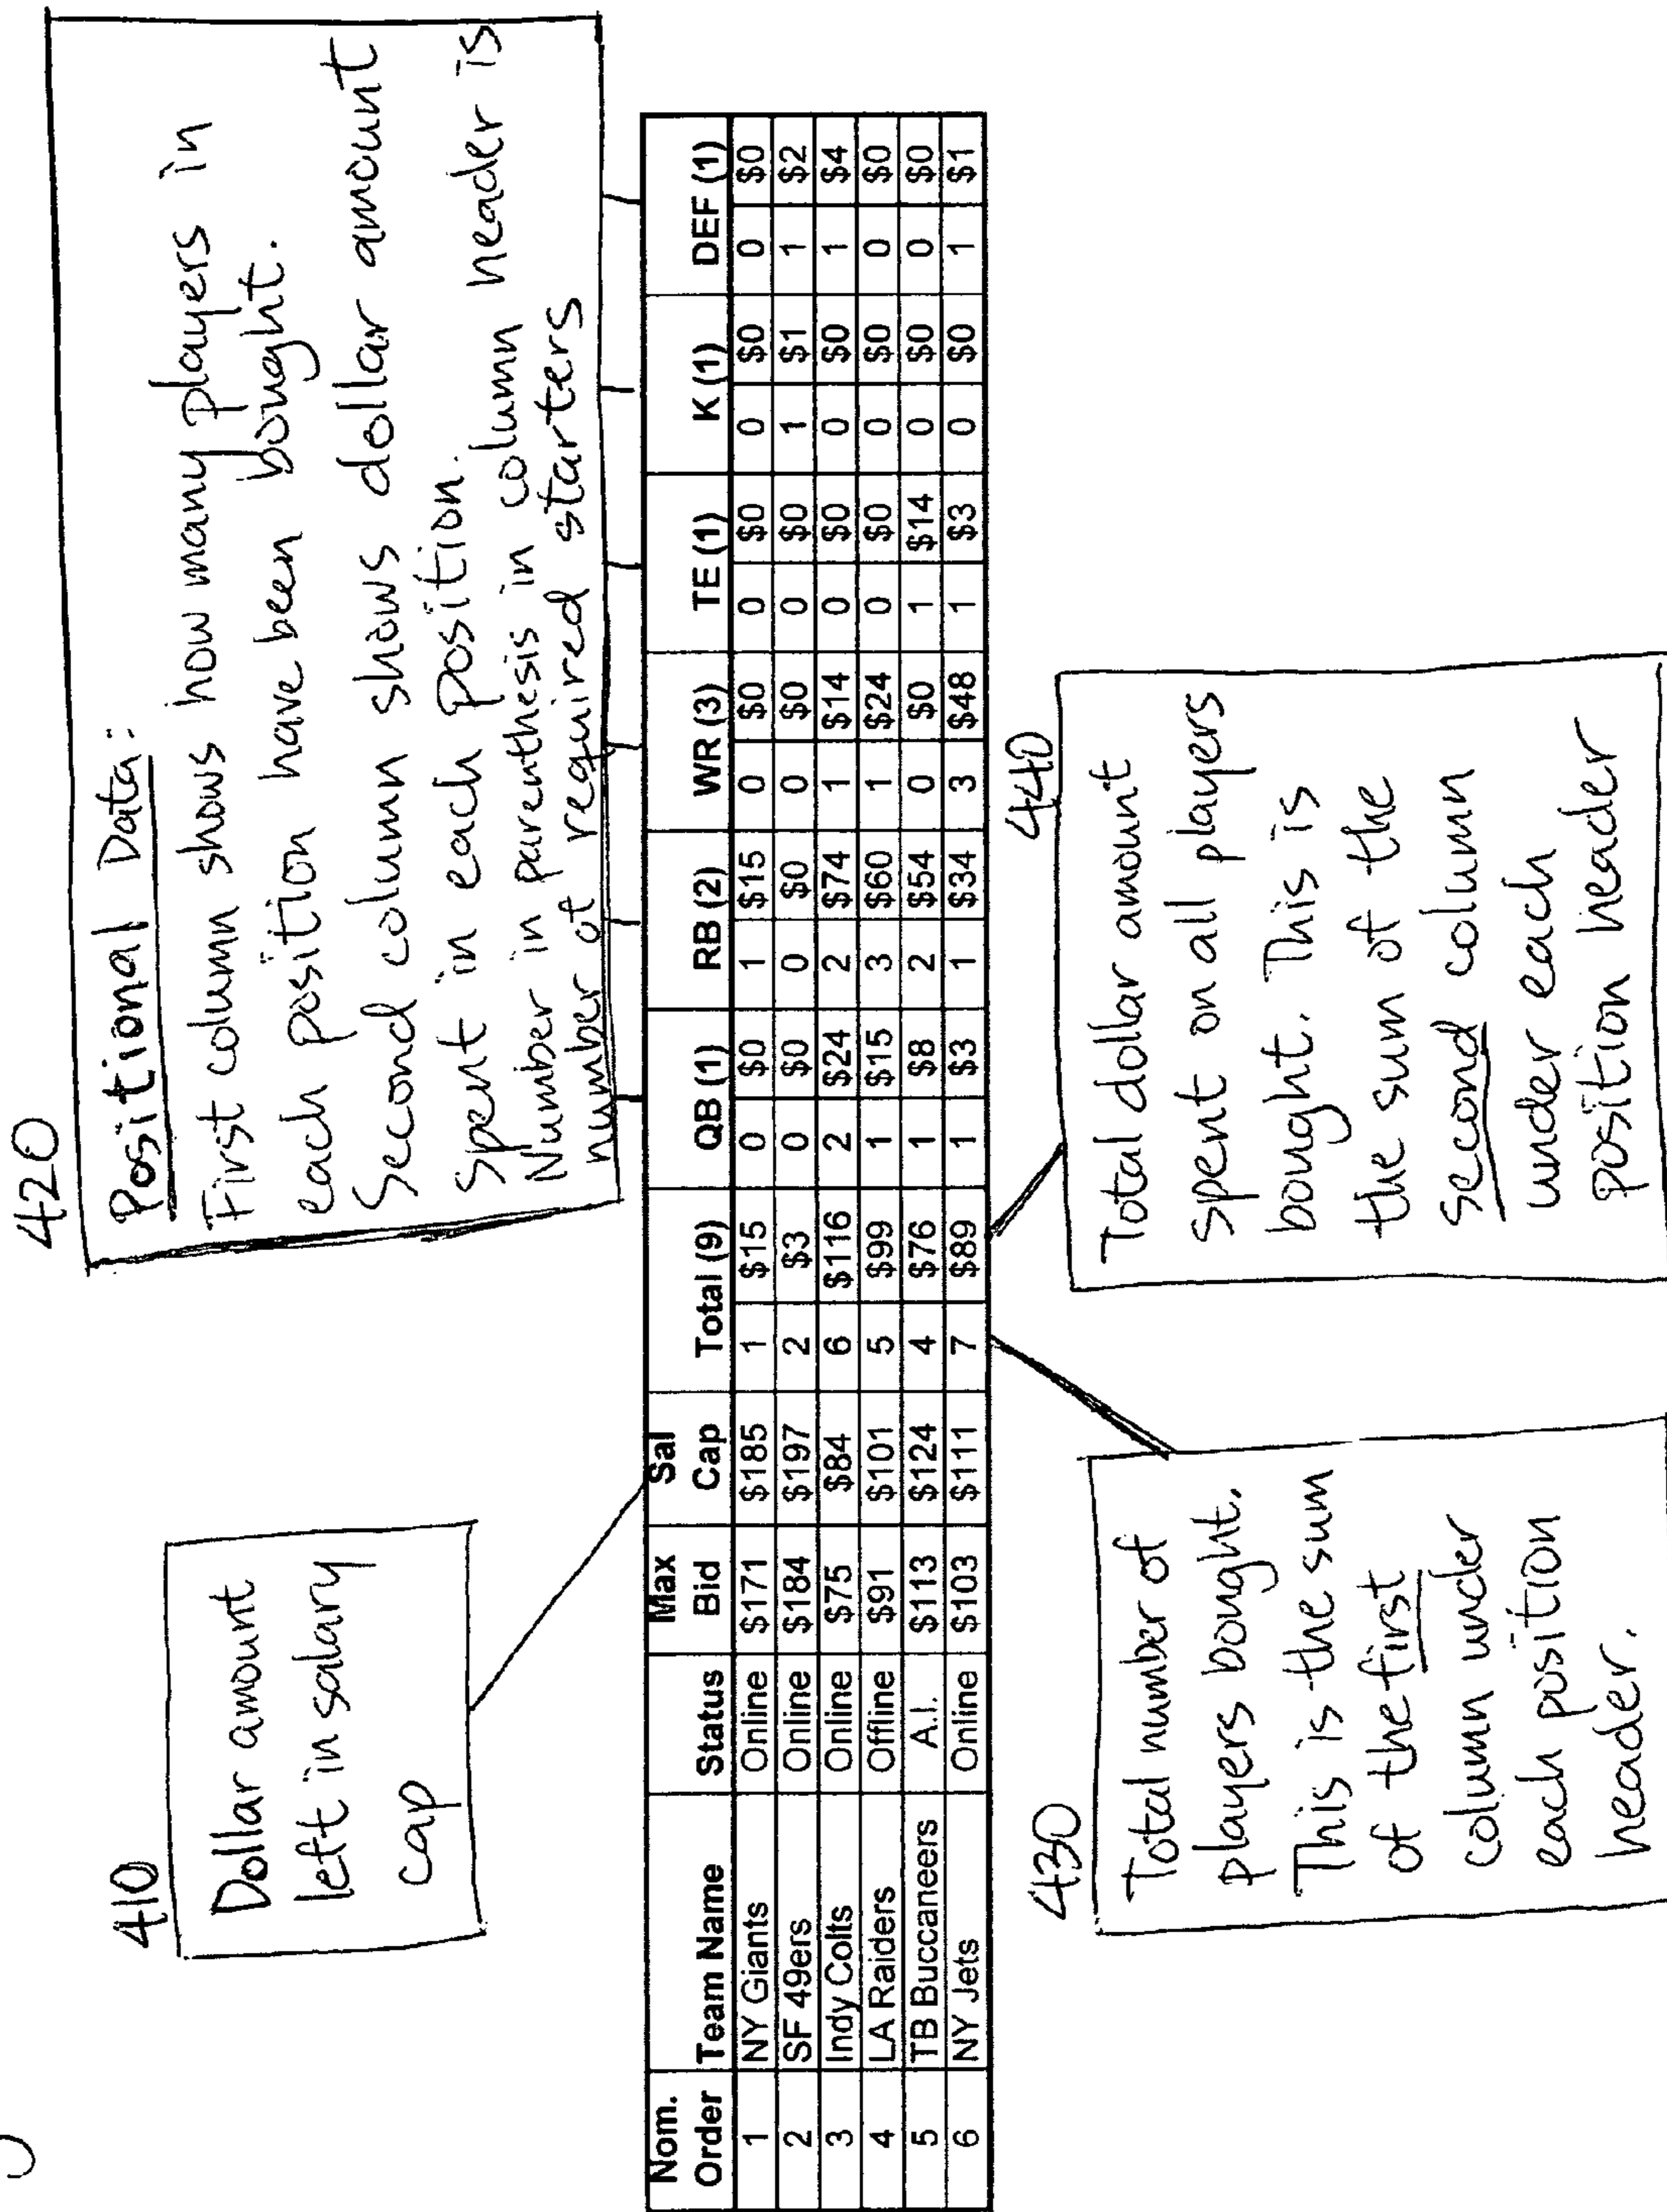 420
Positional Data:
First column shows how many players in
each position have been bought.
Second column shows dollar amount
spent in each position.
Number in parenthesis in column header is
number of required starters
410
Dollar amount
left in salary
cap
Nom. Order Team Name Status Max Bid Sal Cap Total (9) QB (1) RB (2) WR (3) TE (1) K (1) DEF (1)
1 NY Giants Online $171 $185 1 $15 0 $0 1 $15 0 $0 0 $0 0 $0 0 $0
2 SF 49ers Online $184 $197 2 $3 0 $0 0 $0 0 $0 0 $0 1 $1 1 $2
3 Indy Colts Online $75 $84 6 $116 2 $24 2 $74 1 $14 0 $0 0 $0 1 $4
4 LA Raiders Offline $91 $101 5 $99 1 $15 3 $60 1 $24 0 $0 0 $0 0 $0
5 TB Buccaneers A.I. $113 $124 4 $76 1 $8 2 $54 0 $0 1 $14 0 $0 0 $0
6 NY Jets Online $103 $111 7 $89 1 $3 1 $34 3 $48 1 $3 0 $0 1 $1
430
Total number of
players bought.
This is the sum
of the first
column under
each position
header.
440
Total dollar amount
spent on all players
bought. This is
the sum of the
second column
under each
position header